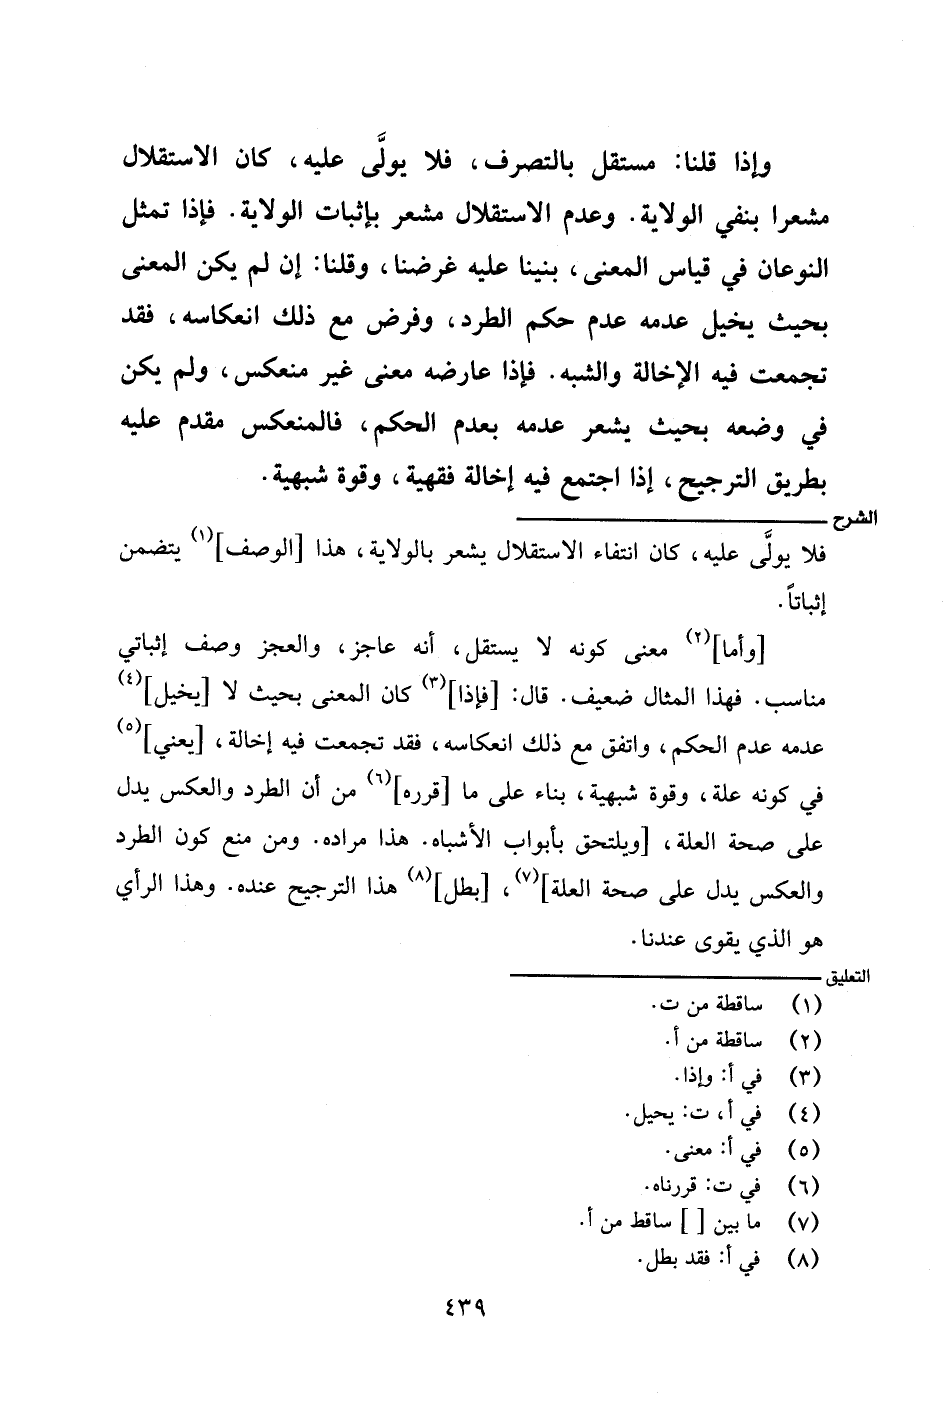 وإذا قلنا: مستقل بالتصرف، فلا يولَّى عليه، كان الاستقلال
مشعرا بنفي الولاية. وعدم الاستقلال مشعر بإثبات الولاية. فإذا تمثل
النوعان في قياس المعنى، بنينا عليه غرضنا، وقلنا: إن لم يكن المعنى
بحيث يخيل عدمه عدم حكم الطرد، وفرض مع ذلك انعكاسه، فقد
تجمعت فيه الإخالة والشبه. فإذا عارضه معنى غير منعكس، ولم يكن
في وضعه بحيث يشعر عدمه بعدم الحكم، فالمنعكس مقدم عليه
بطريق الترجيح، إذا اجتمع فيه إخالة فقهية، وقوة شبهية.
الشرح
فلا يولَّى عليه، كان انتفاء الاستقلال يشعر بالولاية، هذا [الوصف](١) يتضمن
إثباتاً.
[وأما](٢) معنى كونه لا يستقل، أنه عاجز، والعجز وصف إثباتي
مناسب. فهذا المثال ضعيف. قال: [فإذا](٣) كان المعنى بحيث لا [يخيل](٤)
عدمه عدم الحكم، واتفق مع ذلك انعكاسه، فقد تجمعت فيه إخالة، [يعني](٥)
في كونه علة، وقوة شبهية، بناء على ما [قرره](٦) من أن الطرد والعكس يدل
على صحة العلة، [ويلتحق بأبواب الأشباه. هذا مراده. ومن منع كون الطرد
والعكس يدل على صحة العلة](٧)، [بطل](٨) هذا الترجيح عنده. وهذا الرأي
هو الذي يقوى عندنا.
التعليق
(١) ساقطة من ت.
(٢) ساقطة من أ.
(٣) في أ: وإذا.
(٤) في أ، ت: يحيل.
(٥) في أ: معنى.
(٦) في ت: قررناه.
(٧) ما بين [ ] ساقط من أ.
(٨) في أ: فقد بطل.
٤٣٩